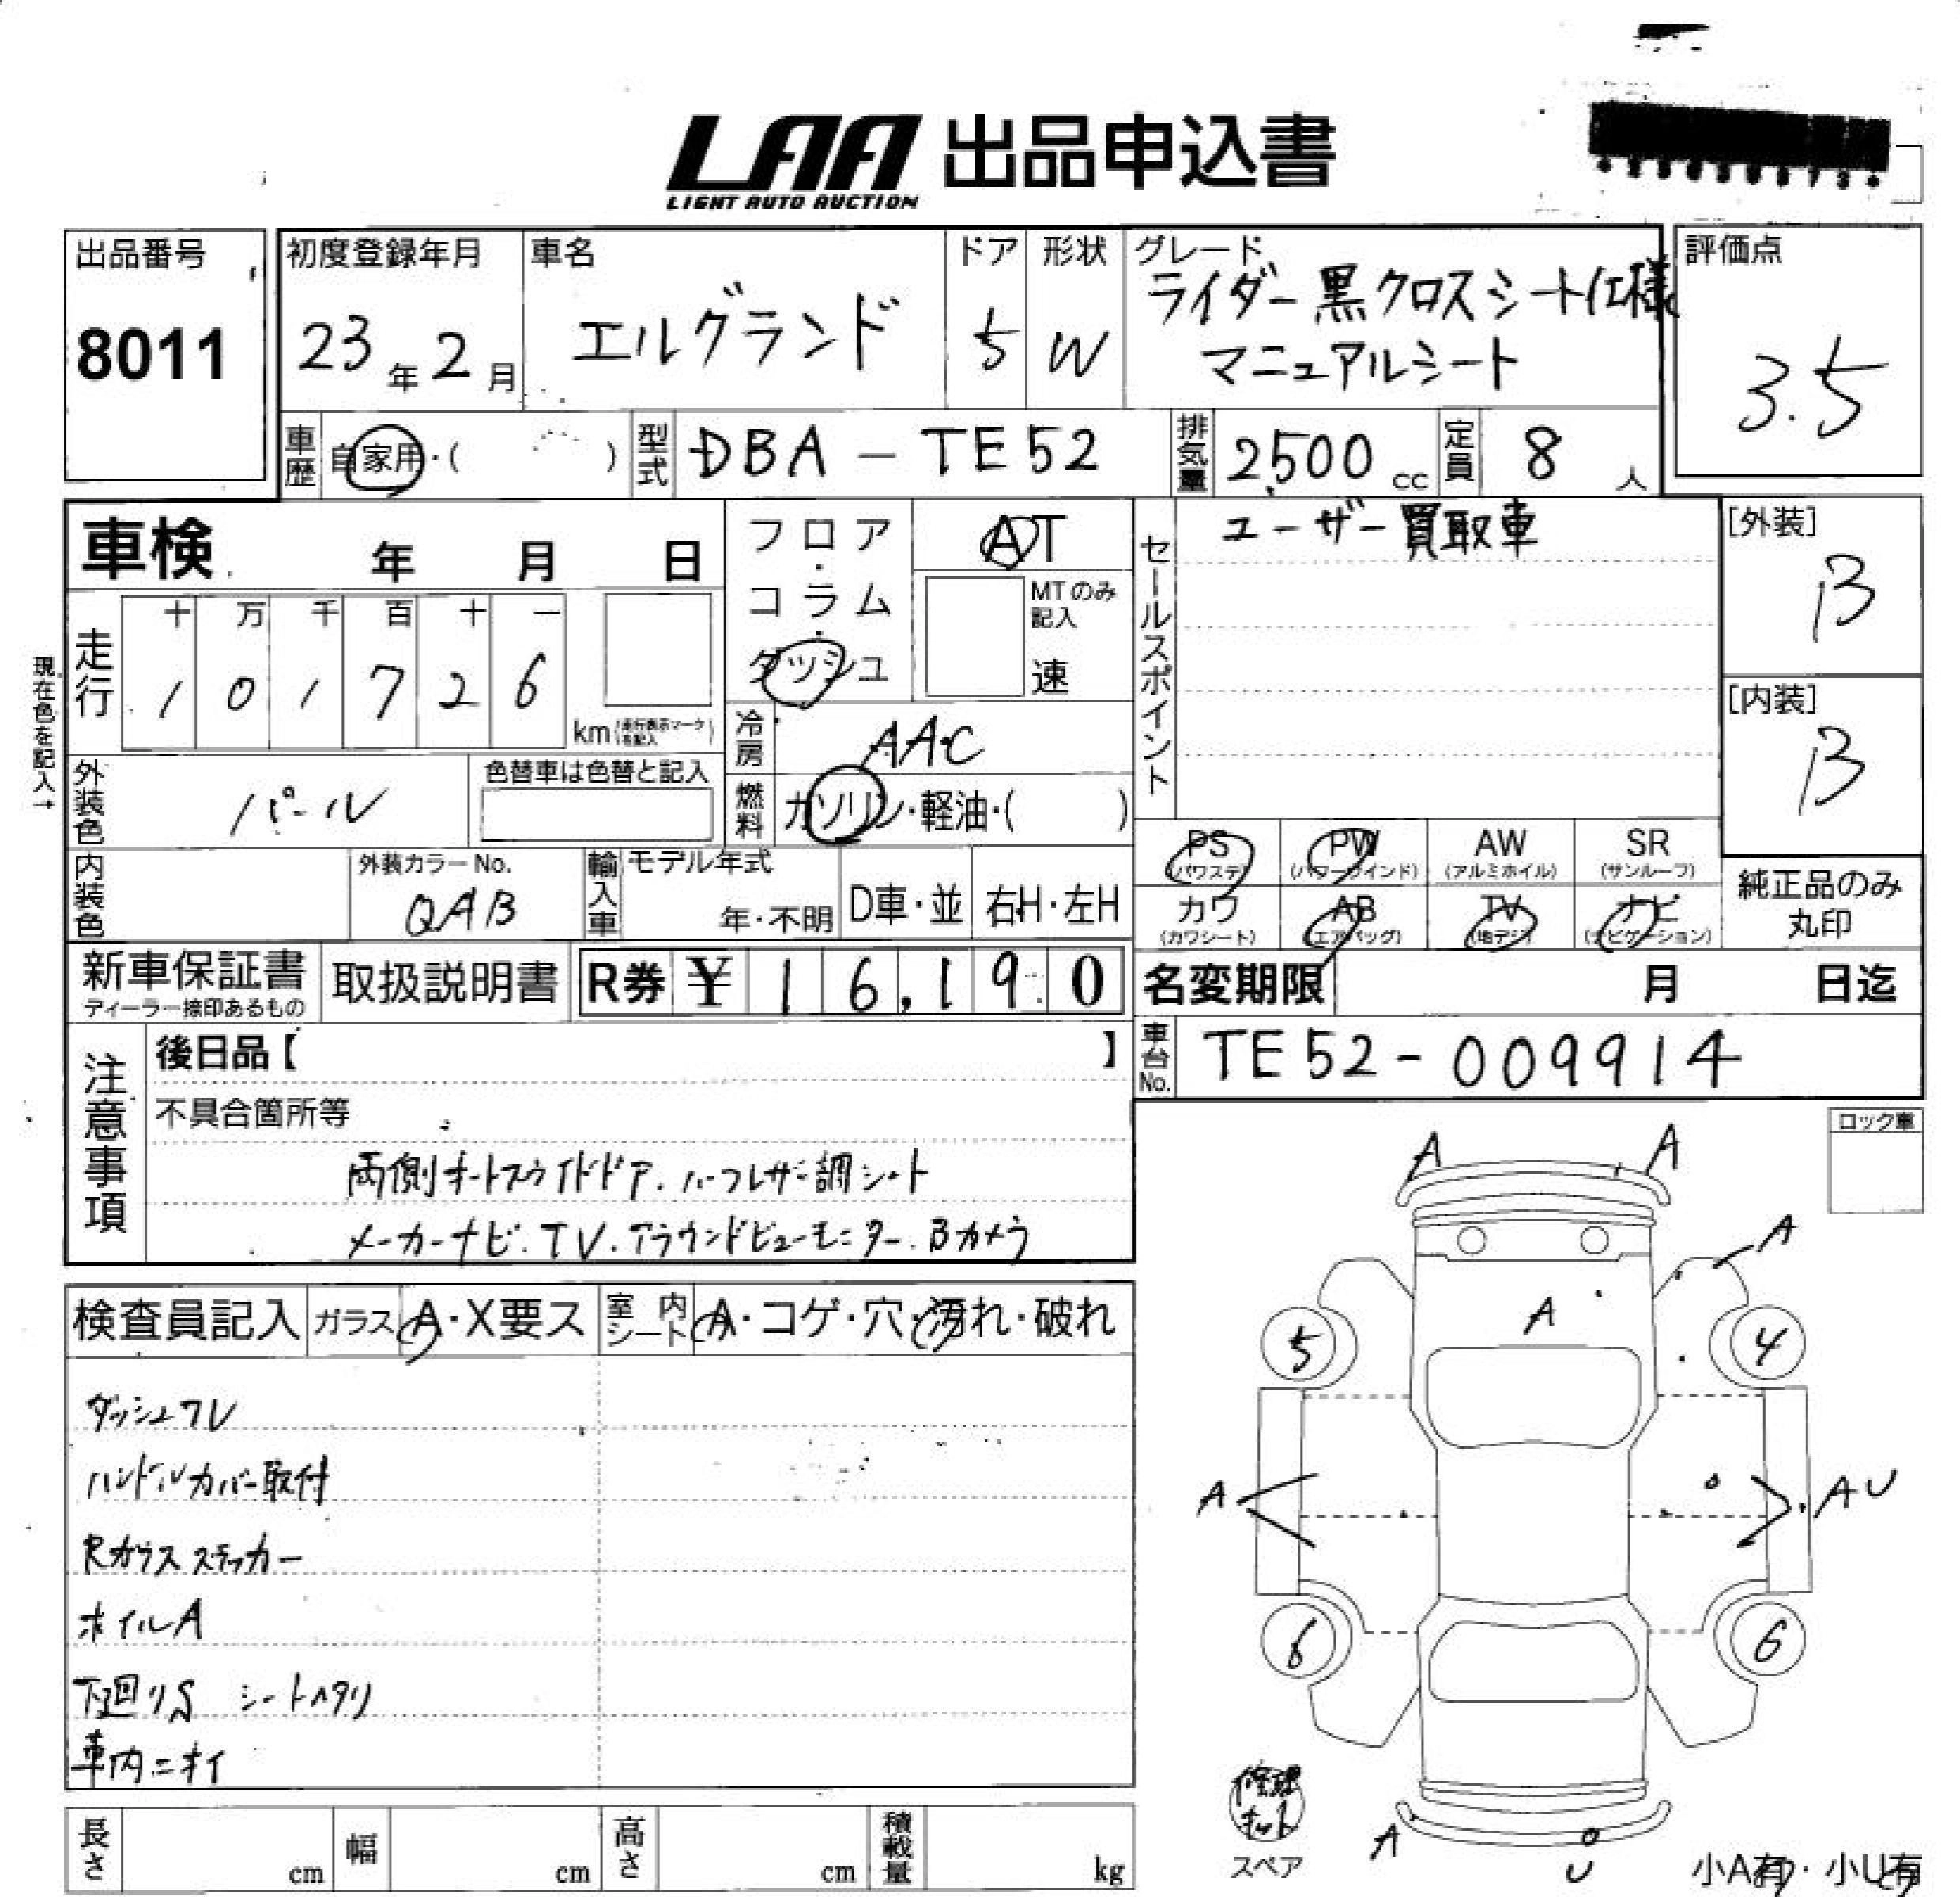 LAA 出品申込書
LIGHT AUTO AUCTION
出品番号
8011
初度登録年月
23年2月
車名
エルグランド
ドア
5
形状
W
グレード
ライダー黒クロスシート仕様
マニュアルシート
評価点
3.5
車歴
自家用・( )
型式
DBA-TE52
排気量
2,500 cc
定員
8 人
車検 年 月 日
フロア・コラム・ダッシュ
AT
MTのみ記入
速
走行
十 万 千 百 十 一
1 0 1 7 2 6
km(走行表示マークを記入)
現在色を記入→
外装色
パール
色替車は色替と記入
冷房
AAC
燃料
ガソリン・軽油・( )
内装色
外装カラーNo.
QAB
輸入車
モデル年式
年・不明
D車・並
右H・左H
セールスポイント
ユーザー買取車
[外装]
B
[内装]
B
PS (パワステ)
PW (パワーウインド)
AW (アルミホイル)
SR (サンルーフ)
カワ (カワシート)
AB (エアバッグ)
TV (地デジ)
ナビ (ナビゲーション)
純正品のみ
丸印
新車保証書
ディーラー捺印あるもの
取扱説明書
R券 ¥ 16,190
名変期限 月 日迄
車台No.
TE52-009914
注意事項
後日品【 】
不具合箇所等
両側オートスライドドア.ハーフレザー調シート
メーカーナビ.TV.アラウンドビューモニター.Bカメラ
ロック車
検査員記入
ガラス A・X要ス
室内シート A・コゲ・穴・汚れ・破れ
ダッシュワレ
ハンドルカバー取付
Rガラスステッカー
ホイルA
下廻りS シートヘタリ
車内ニオイ
A A
A
A
5 4
A AU
6 6
修理キット
スペア
A U
小A有・小U有
長さ cm
幅 cm
高さ cm
積載量 kg